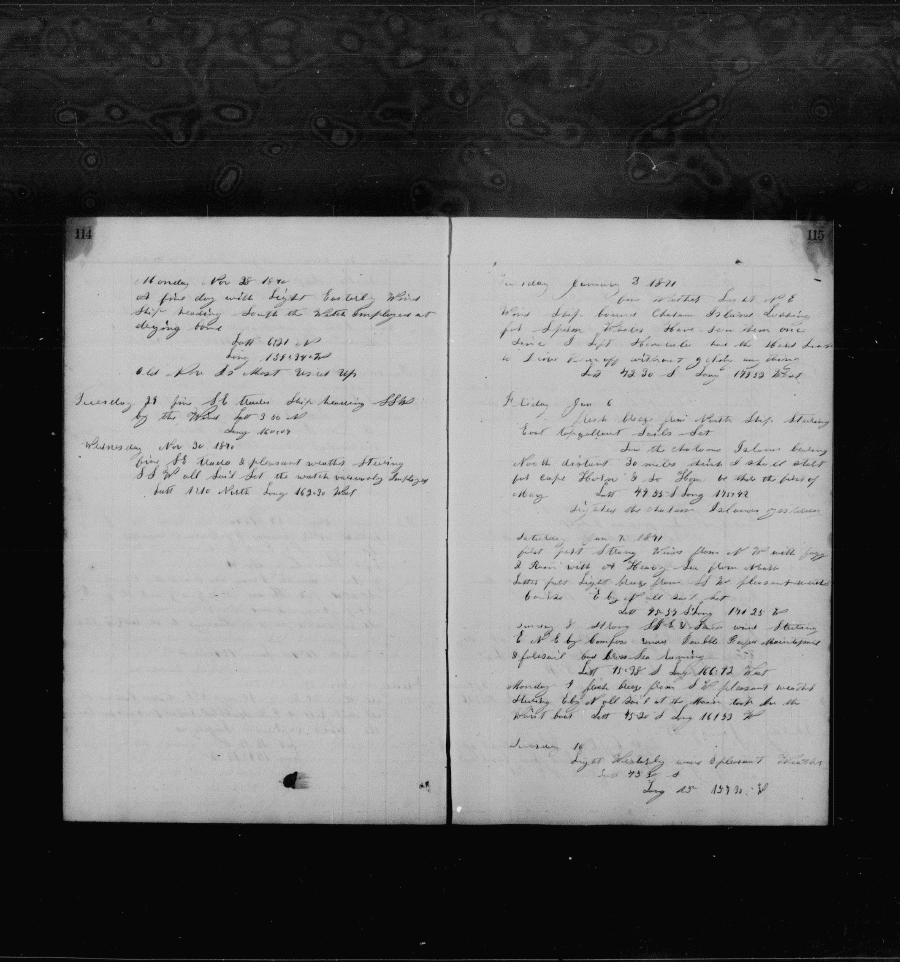 114
Monday Nov 28 1870
A fine day with Light Easterly Wind
Ship heading South the Watch Employed at
drying bone
Latt 6.21 N
Long 158.34 W
Old Nov Is Most Used Up
Tuesday 29 fine S.E Trades Ship heading SSW
by the Wind Latt 3 50 N
Long
Wednesday Nov 30 1870
fine SE Trades & pleasant weather Steering
S S W all Sail Set the watch variously Employed
Latt 1.10 North Long 162.30 West
115
Tuesday January 3 1871
fine weather Light N E
Wind Ship bound Chatam Island Looking
for Sperm Whales Have Seen them once
Since I Left Honolulu but the
without getting any
Latt 42.30 S Long West
Friday Jan 6
fresh breeze from North Ship Steering
East topgallant Sails Set
Saw the Chatam Island bearing
North distant 30 miles think I shall start
for Cape Horn & So Home be there the first of
May Latt 44.55 S Long
Sighted the Chatam Islands yesterday
Saturday Jan 7 1871
first part Strong Winds from N W with fogg
& Rain with A Heavy Sea from
Latter part Light breeze from S W pleasant weather
Course E by N all Sail Set
Latt S Long W
Sunday 8 Strong wind Steering
E N E by Compass under Double Reefed Maintopsail
& foresail Sea Running
Latt 45.38 S Long 166.42 West
Monday 9 fresh breeze from S W pleasant weather
Steering E by N all Sail at the Main took in the
Waist boat Latt 45.20 S Long 161 53 W
Tuesday 10
Light Westerly wind & pleasant Weather
Latt S
Long W